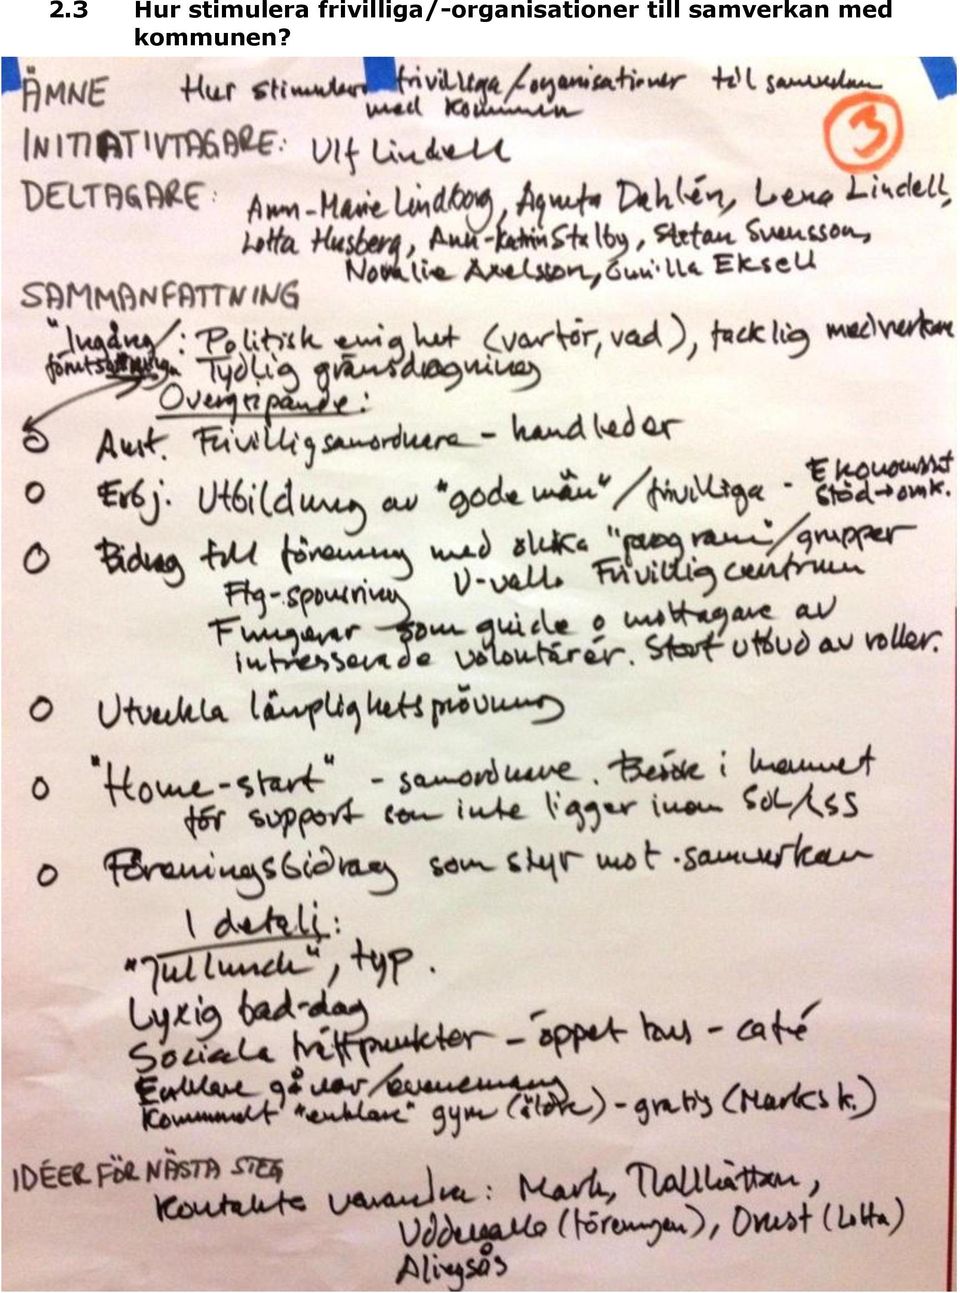 2.3 Hur stimulera frivilliga/-organisationer till samverkan med
kommunen?
ÄMNE Hur stimulera frivilliga/organisationer till samverkan
med kommunen
3
INITIATIVTAGARE: Ulf Lindell
DELTAGARE: Ann-Marie Lindborg, Agneta Dahlén, Lena Lindell,
Lotta Husberg, Ann-Katrin Stalby, Stefan Svensson,
Novalie Axelsson, Gunilla Eksell
SAMMANFATTNING
"Ingång/: Politisk enighet (varför, vad), facklig medverkan
förutsättningar Tydlig gränsdragning
Övergripande:
o Anst. Frivilligsamordnare - handleder
o Erbj. Utbildning av "gode män"/frivilliga - Ekonomiskt
stöd → omk.
o Bidrag till förening med olika "program"/grupper
Ftg-sponsring U-valla Frivilligcentrum
Fungerar som guide o mottagare av
intresserade volontärer. Stort utbud av roller.
o Utveckla lämplighetsprövning
o "Home-start" - samordnare. Besök i hemmet
för support som inte ligger inom SoL/LSS
o Föreningsbidrag som styr mot samverkan
I detalj:
"Jullunch", typ.
Lyxig bad-dag
Sociala träffpunkter - öppet hus - café
Enklare gåvor/evenemang
Kommunalt "enklare" gym (äldre) - gratis (Marks k.)
IDÉER FÖR NÄSTA STEG
Kontakta varandra: Mark, Trollhättan,
Uddevalla (föreningen), Orust (Lotta)
Alingsås